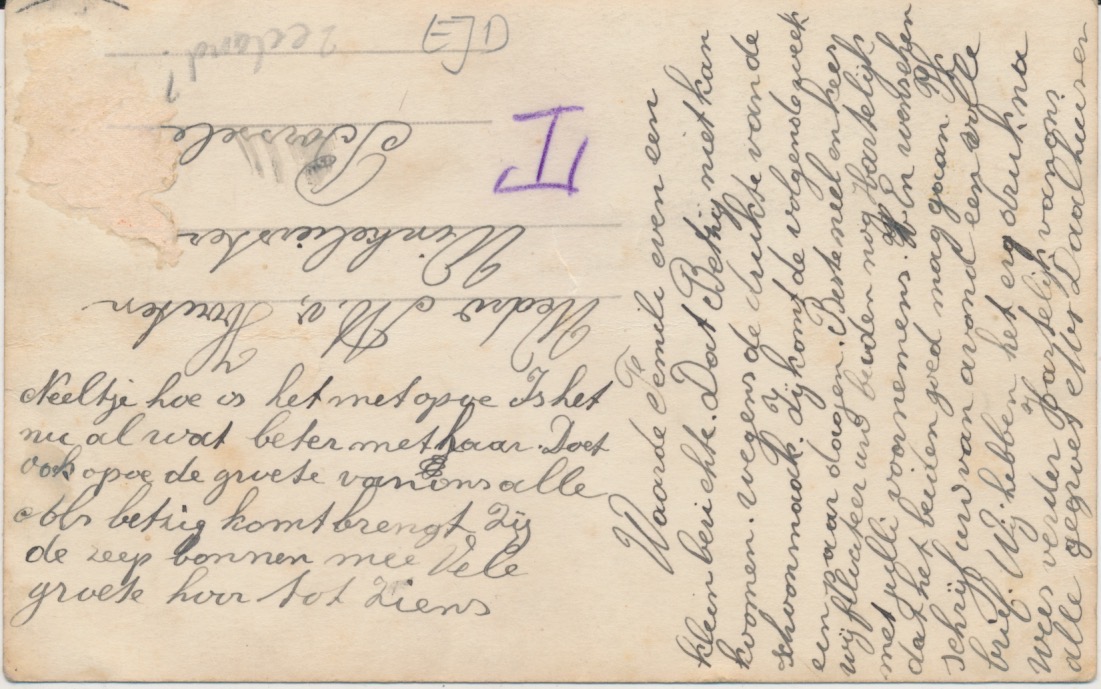 Waarde Femili even een
klein berichte. Dat Betzij niet kan
koomen. wegens de drukte van de
schoonmaak. Zij komt de volgende week
een paar daagen. Beste neel en kees
wij flisiteer und beiden nog hartelijk
met julli voornemens. En wenschen
dat het beiden goed mag gaan. Ik
schrijf uw van avond een volle
brief. Wij hebben het erg druk. na
wees verder hartelijk van ons
alle gegroet Mvr Daalhuizen
Neeltje hoe is het met opoe Is het
nu al wat beter met haar. Doet
ook opoe de groete van ons alle
Als betzig komt brengt Zij
de zeep bonnen mee Vele
groete hoor tot Ziens
Wedw M. v, Houten
Winkelierster
Borssele
Zeeland
II